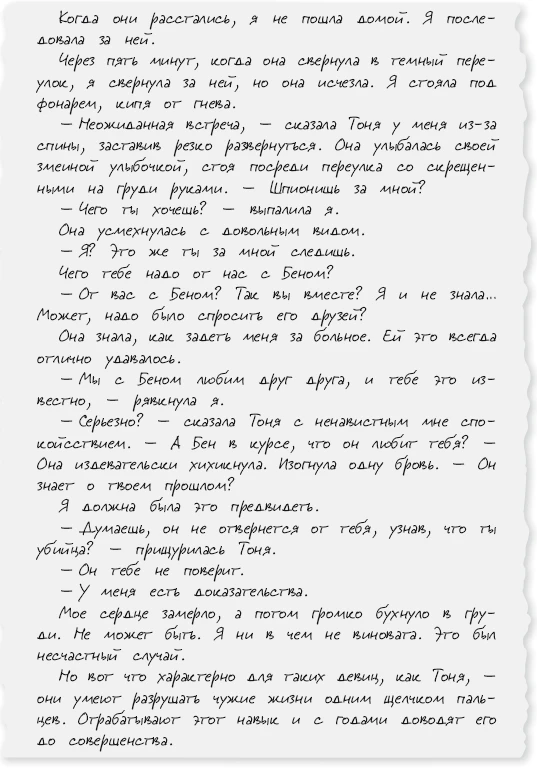 Когда они расстались, я не пошла домой. Я после-
довала за ней.
Через пять минут, когда она свернула в темный пере-
улок, я свернула за ней, но она исчезла. Я стояла под
фонарем, кипя от гнева.
— Неожиданная встреча, — сказала Тоня у меня из-за
спины, заставив резко развернуться. Она улыбалась своей
змеиной улыбочкой, стоя посреди переулка со скрещен-
ными на груди руками. — Шпионишь за мной?
— Чего ты хочешь? — выпалила я.
Она усмехнулась с довольным видом.
— Я? Это же ты за мной следишь.
Чего тебе надо от нас с Беном?
— От вас с Беном? Так вы вместе? Я и не знала...
Может, надо было спросить его друзей?
Она знала, как задеть меня за больное. Ей это всегда
отлично удавалось.
— Мы с Беном любим друг друга, и тебе это из-
вестно, — рявкнула я.
— Серьезно? — сказала Тоня с ненавистным мне спо-
койсствием. — А Бен в курсе, что он любит тебя? —
Она издевательски хихикнула. Изогнула одну бровь. — Он
знает о твоем прошлом?
Я должна была это предвидеть.
— Думаешь, он не отвернется от тебя, узнав, что ты
убийца? — прищурилась Тоня.
— Он тебе не поверит.
— У меня есть доказательства.
Мое сердце замерло, а потом громко бухнуло в гру-
ди. Не может быть. Я ни в чем не виновата. Это был
несчастный случай.
Но вот что характерно для таких девиц, как Тоня, —
они умеют разрушать чужие жизни одним щелчком паль-
цев. Отрабатывают этот навык и с годами доводят его
до совершенства.